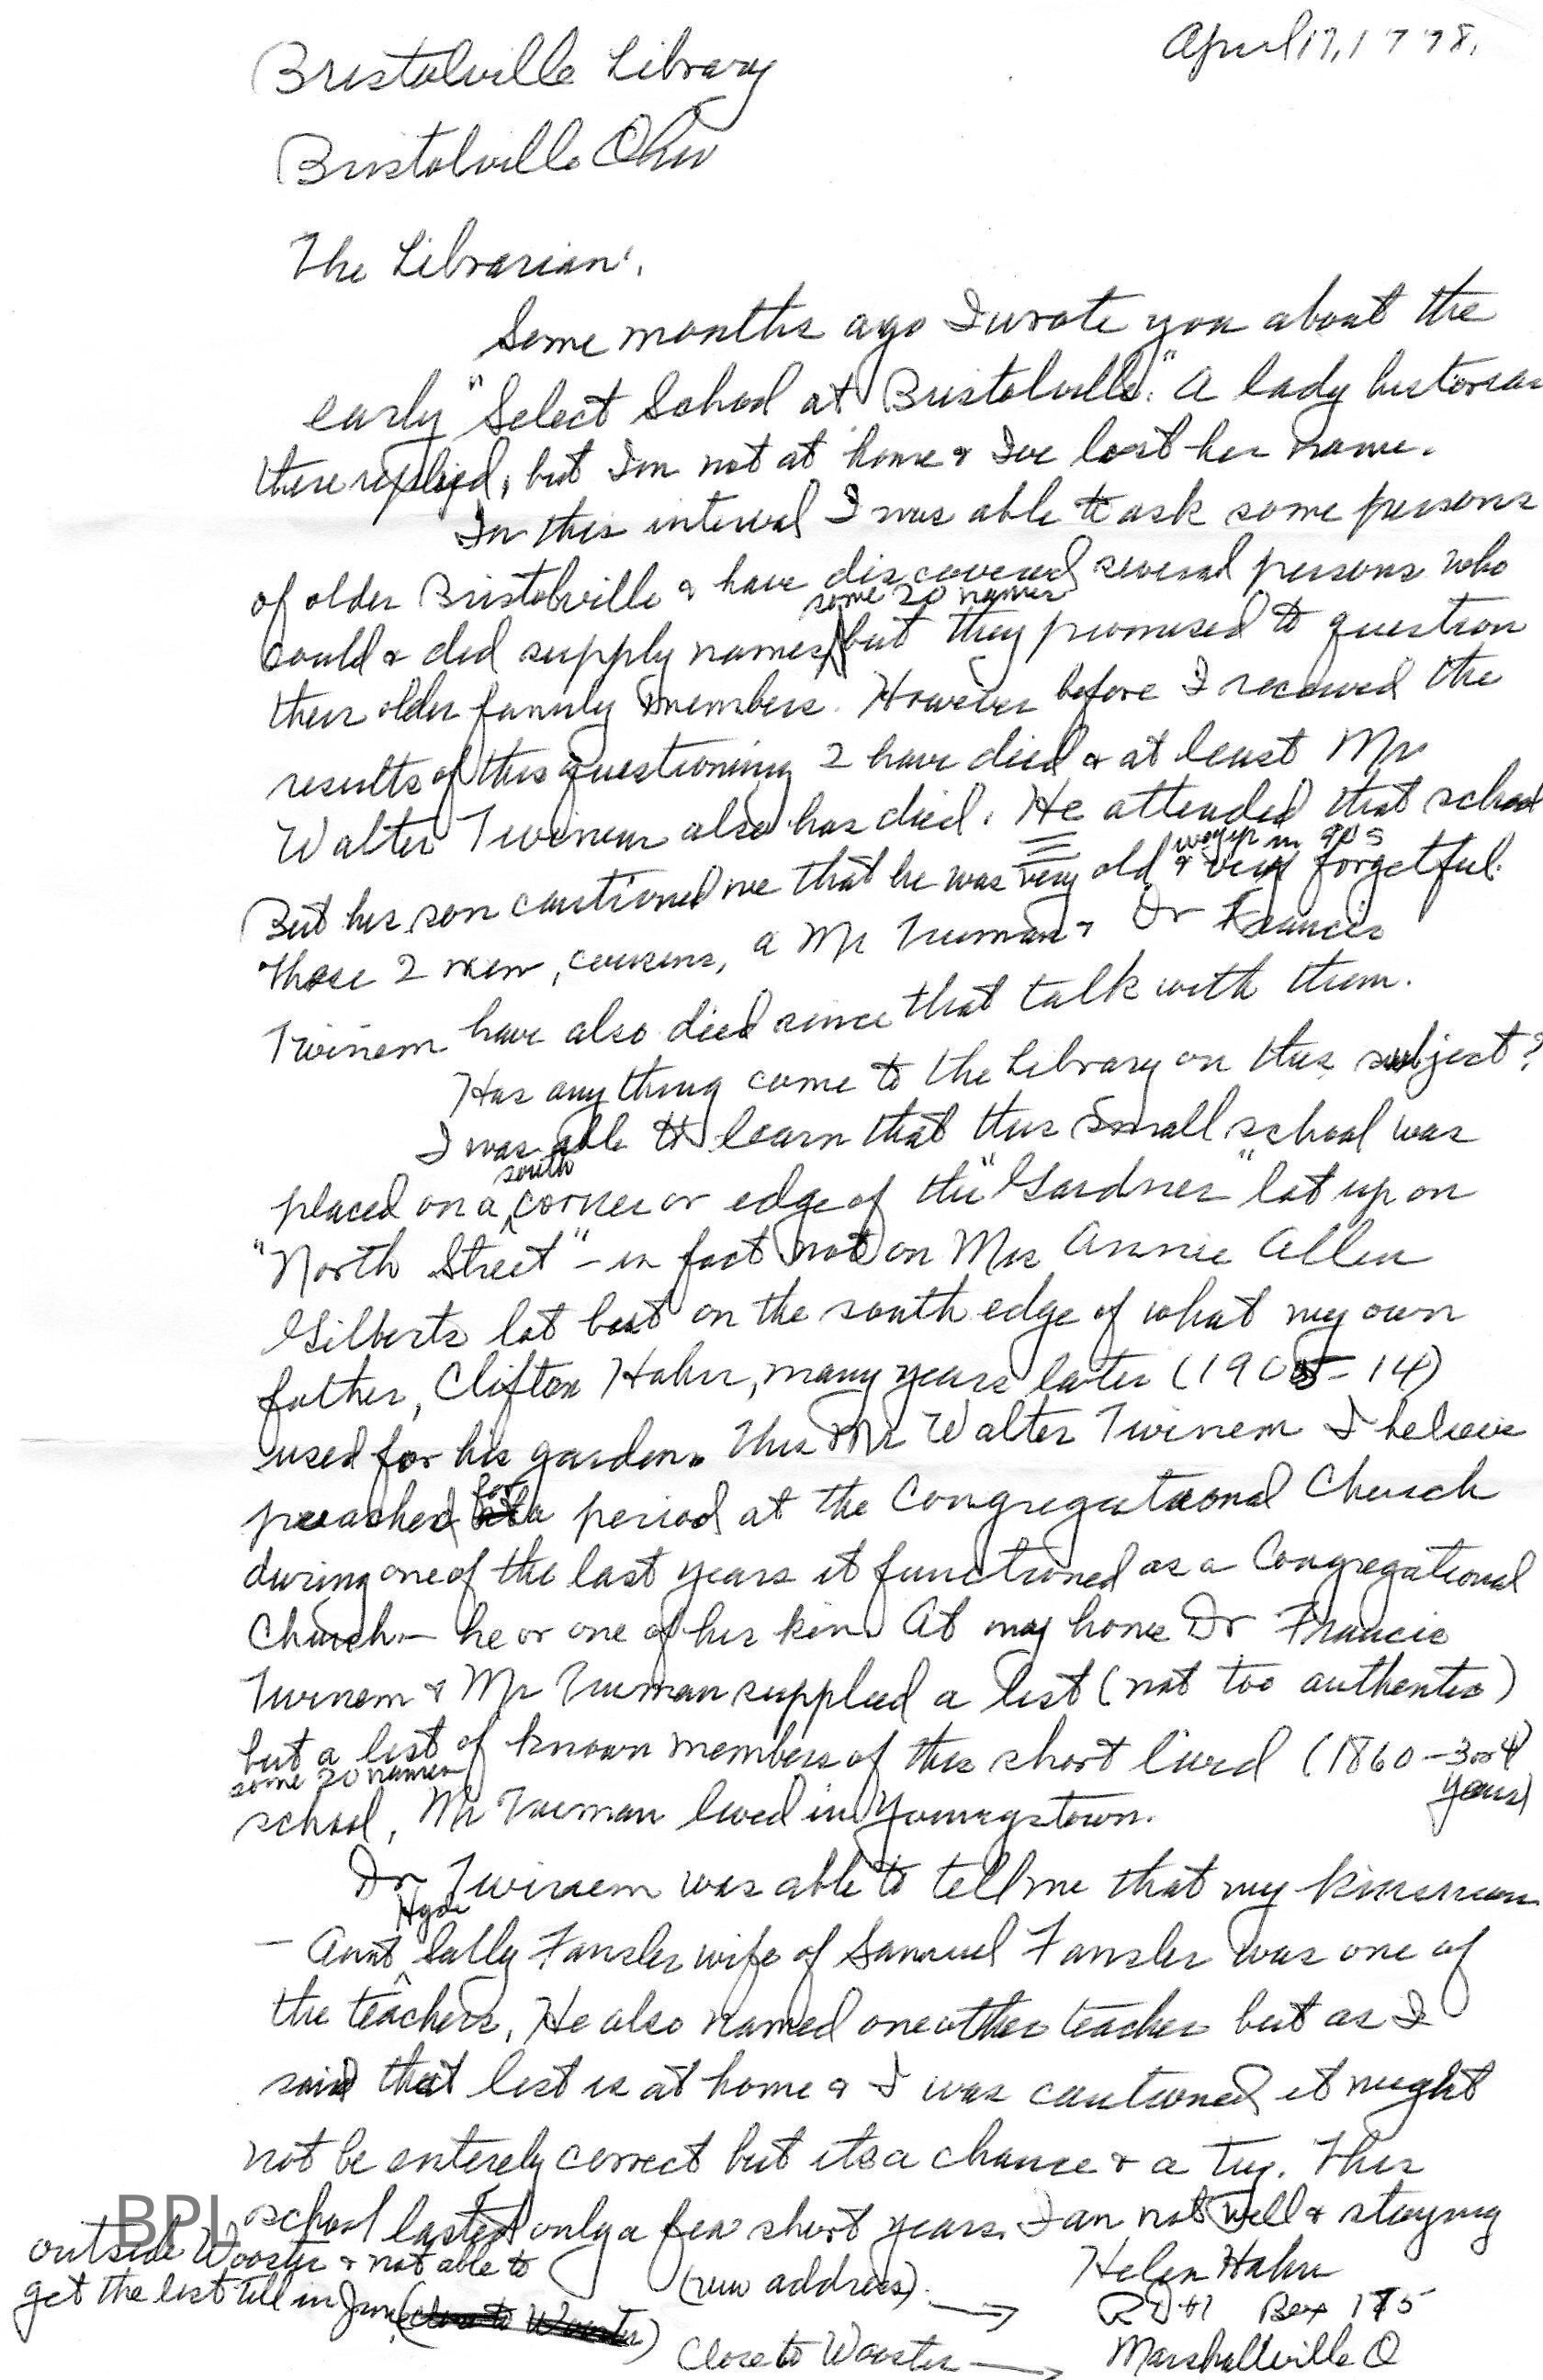 April 17, 1978.
Bristolville Library
Bristolville Ohio
The Librarian:
Some months ago I wrote you about the
early "Select School at Bristolville." A lady historian
there replied, but I'm not at home & I've lost her name.
In this interval I was able to ask some persons
of older Bristolville & have discovered several persons who
some 20 names
could & did supply names, but they promised to question
their older family members. However before I received the
results of this questioning 2 have died & at least Mr
Walter Twinem also has died. He attended that school
way up in 90s
But his son cautioned me that he was very old & very forgetful.
Those 2 men, cousins, a Mr Truman & Dr Francis
Twinem have also died since that talk with them.
Has anything come to the Library on this subject?
I was able to learn that this small school was
south
placed on a corner or edge of the "Gardner" lot up on
"North Street" - in fact not on Mrs Annie Allen
Gilberts lot but on the south edge of what my own
father, Clifton Hahn, many years later (1905-14)
used for his garden. This Mr Walter Twinem I believe
for
preached a period at the Congregational Church
during one of the last years it functioned as a Congregational
Church - he or one of his kin. At my home Dr Francis
Twinem & Mr Truman supplied a list (not too authentic)
but a list of known members of this short lived (1860 - 3 or 4
some 20 names years)
school, Mr Truman lived in Youngstown.
Dr Twinem was able to tell me that my kinswoman
Hyde
- Aunt Sally Fansler wife of Samuel Fansler was one of
the teachers. He also named one other teacher but as I
said that list is at home & I was cautioned it might
not be entirely correct but its a chance & a try. This
school lasted only a few short years. I am not well & staying
BPL
outside Wooster & not able to
get the list till in June (close to Wooster)
(new address) →
Close to Wooster →
Helen Hahn
RD #1 Box 175
Marshallville O